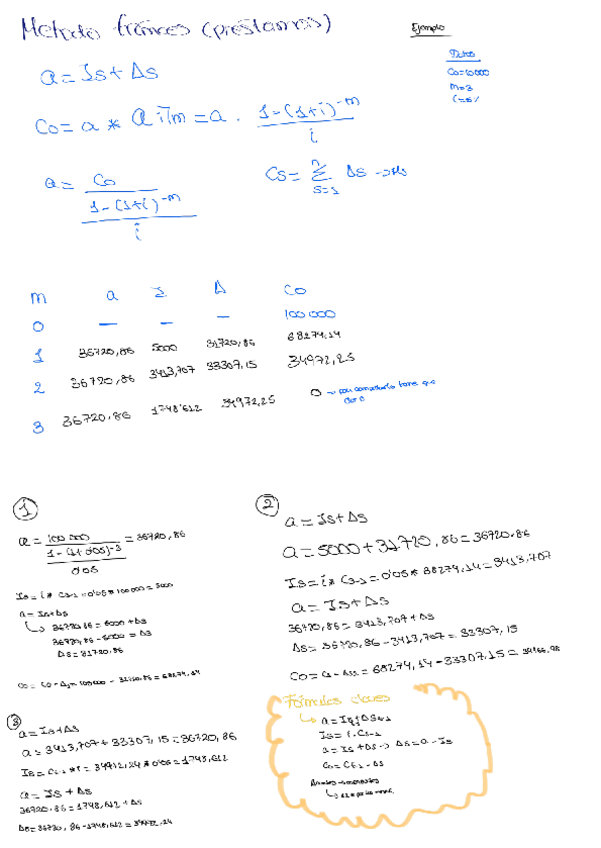 Metodo frances (prestamos)
Ejemplo
Datos
Co=10000
m=3
i=5%
a = Is + Δs
Co = a * a i⅂m = a · 1-(1+i)^-m / i
a = Co / 1-(1+i)^-m / i
Cs = Σ n s=1 Δs
m a I Δ Co
0 — — — 100000
1 36720,86 5000 31720,86 68279,14
2 36720,86 3413,707 33307,15 34972,25
3 36720,86 1748'612 34972,25 0 → que
①
a = 100000 / 1-(1+0'05)^-3 / 0'05 = 36720,86
Is = i * Cs-1 = 0'05 * 100000 = 5000
a = Is + Δs
↳ 36720,86 = 5000 + Δs
36720,86 - 5000 = Δs
Δs = 31720,86
Co = Co - Δs = 100000 - 31720,86 = 68279,14
②
a = Is + Δs
a = 5000 + 31720,86 = 36720,86
Is = i * Cs-1 = 0'05 * 68274,14 = 3413,707
a = Is + Δs
36720,86 = 3413,707 + Δs
Δs = 36720,86 - 3413,707 = 33307,15
Co = = 68274,14 - 33307,15 =
③
a = Is + Δs
a = 3413,707 + 33307,15 = 36720,86
Is = Cs-1 * i = 34972,24 * 0'05 = 1748,612
a = Is + Δs
36720,86 = 1748,612 + Δs
Δs = 36720,86 - 1748,612 = 34972,24
Fórmulas claves
Is = i · Cs-1
a = Is + Δs → Δs = a - Is